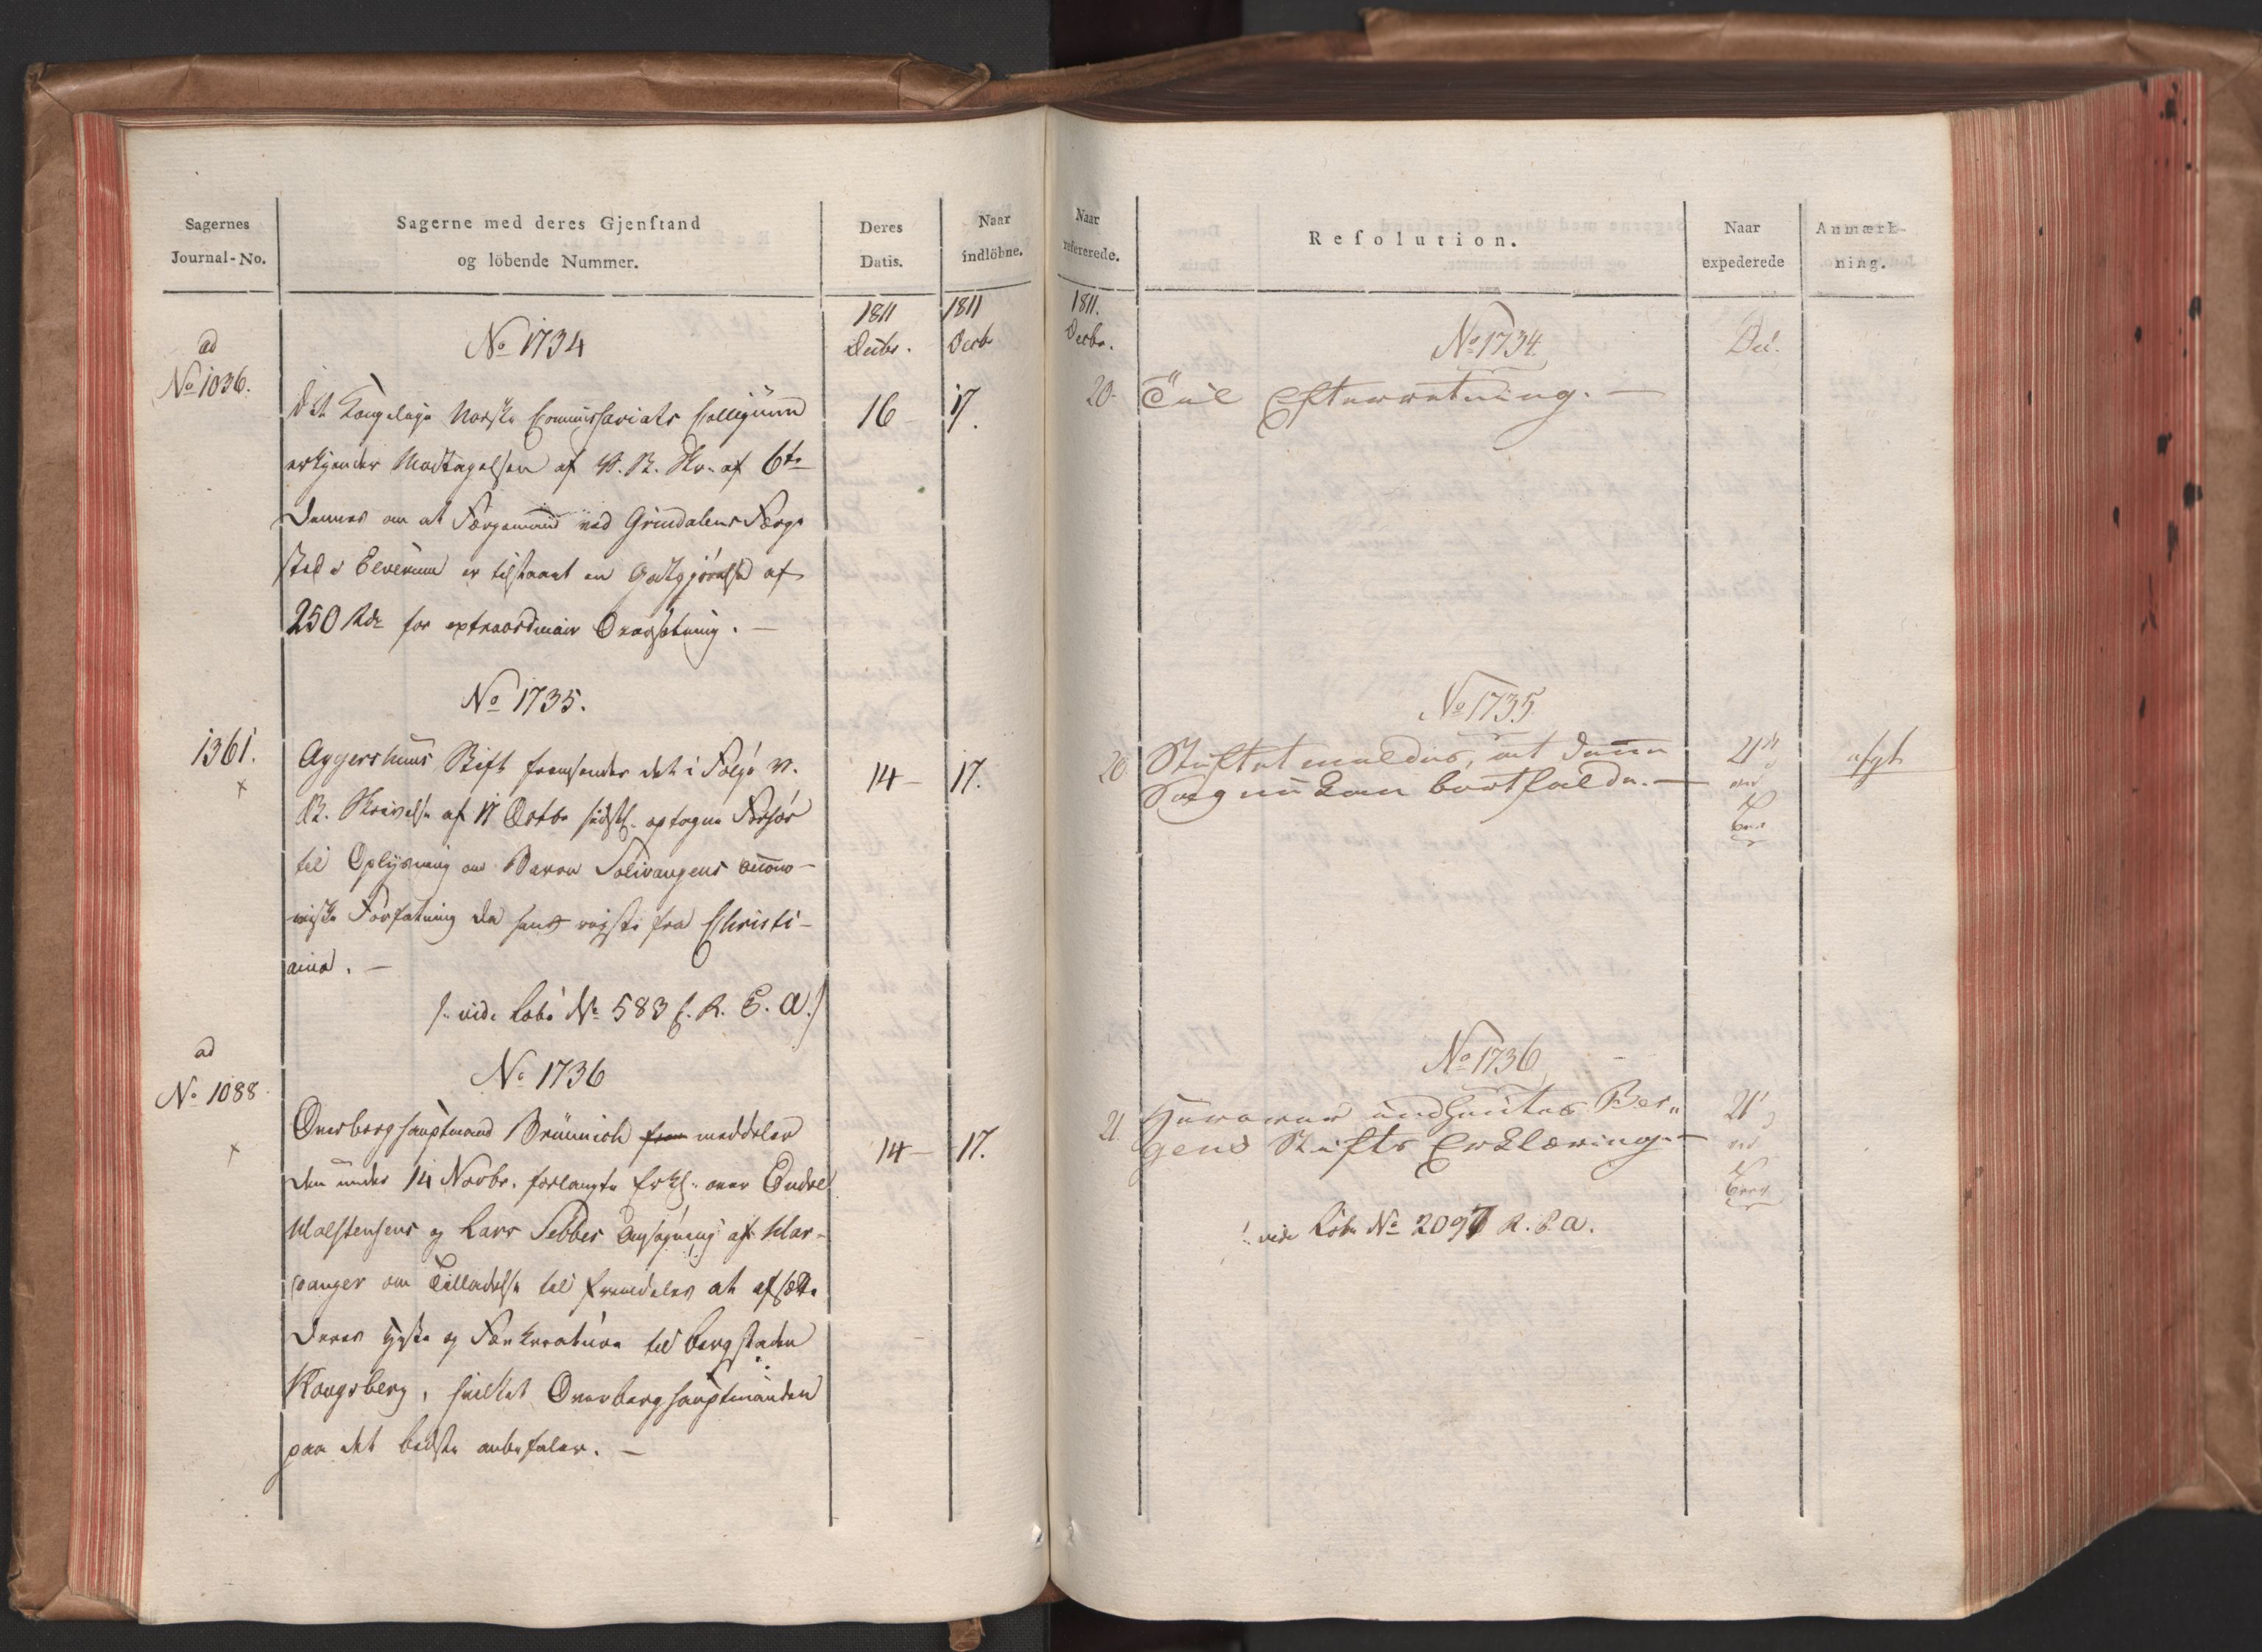 Sagernes
Journal-No.
Sagerne med deres Gjenstand
og löbende Nummer.
Deres
Datis.
Naar
indlöbne.
1811
Decbr.
1811
Decb
ad
No 1036.
No 1734
Det Kongelige Norske Commissariats Collegium
erkjender Modtagelsen af R. Skr. af 6te
dennes om at Færgemand ved Grindalens Færge
sted i Elverum er tilstaaet en Godtgjörelse af
250 Rdr for extraordinair Oversætning. —
16 —
17.
No 1735.
1361.
x
Aggershuus Stift fremsender det i Fölge
R. Skrivelse af 17 Octbr sidstl. optagne Forhör
til Oplysning om Baron Solivangens oecono-
miske Forfatning da han reiste fra Christi-
ania. —
/: vide Löbe No 583 f. R. E. A. /
14 —
17.
ad
No 1088.
x
No 1736
Overberghauptmand Brünnich meddeler
den under 14 Novbr. forlangte Erkl. over Endre
Halstensens og Lars Sebbes Ansögning af Har-
danger om Tilladelse til fremdeles at afsætte
deres og Fækreature til Bergstaden
Kongsberg, hvilket Overberghauptmanden
paa det bedste anbefaler. —
14 —
17.
Naar
refererede.
Resolution.
Naar
expederede
Anmærk-
ning.
1811.
Decbr.
No 1734
20.
Til Efterretning. —
No 1735
20
Stiftet meldes, at denne
Sag nu kan bortfalde. —
21
afgt
No 1736
21.
Herover indhentes Ber„
gens Stifts Erklæring. —
21
/: vide Löbe No 2097 R. E. A.